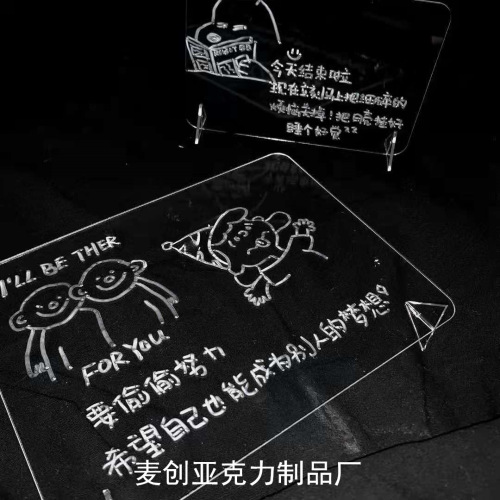 今天结束啦
现在立刻马上把细碎的
烦恼关掉!把月亮挂好
睡个好觉zz
I'LL BE THER
FOR YOU
要偷偷努力
希望自己也能成为别人的梦想。
麦创亚克力制品厂